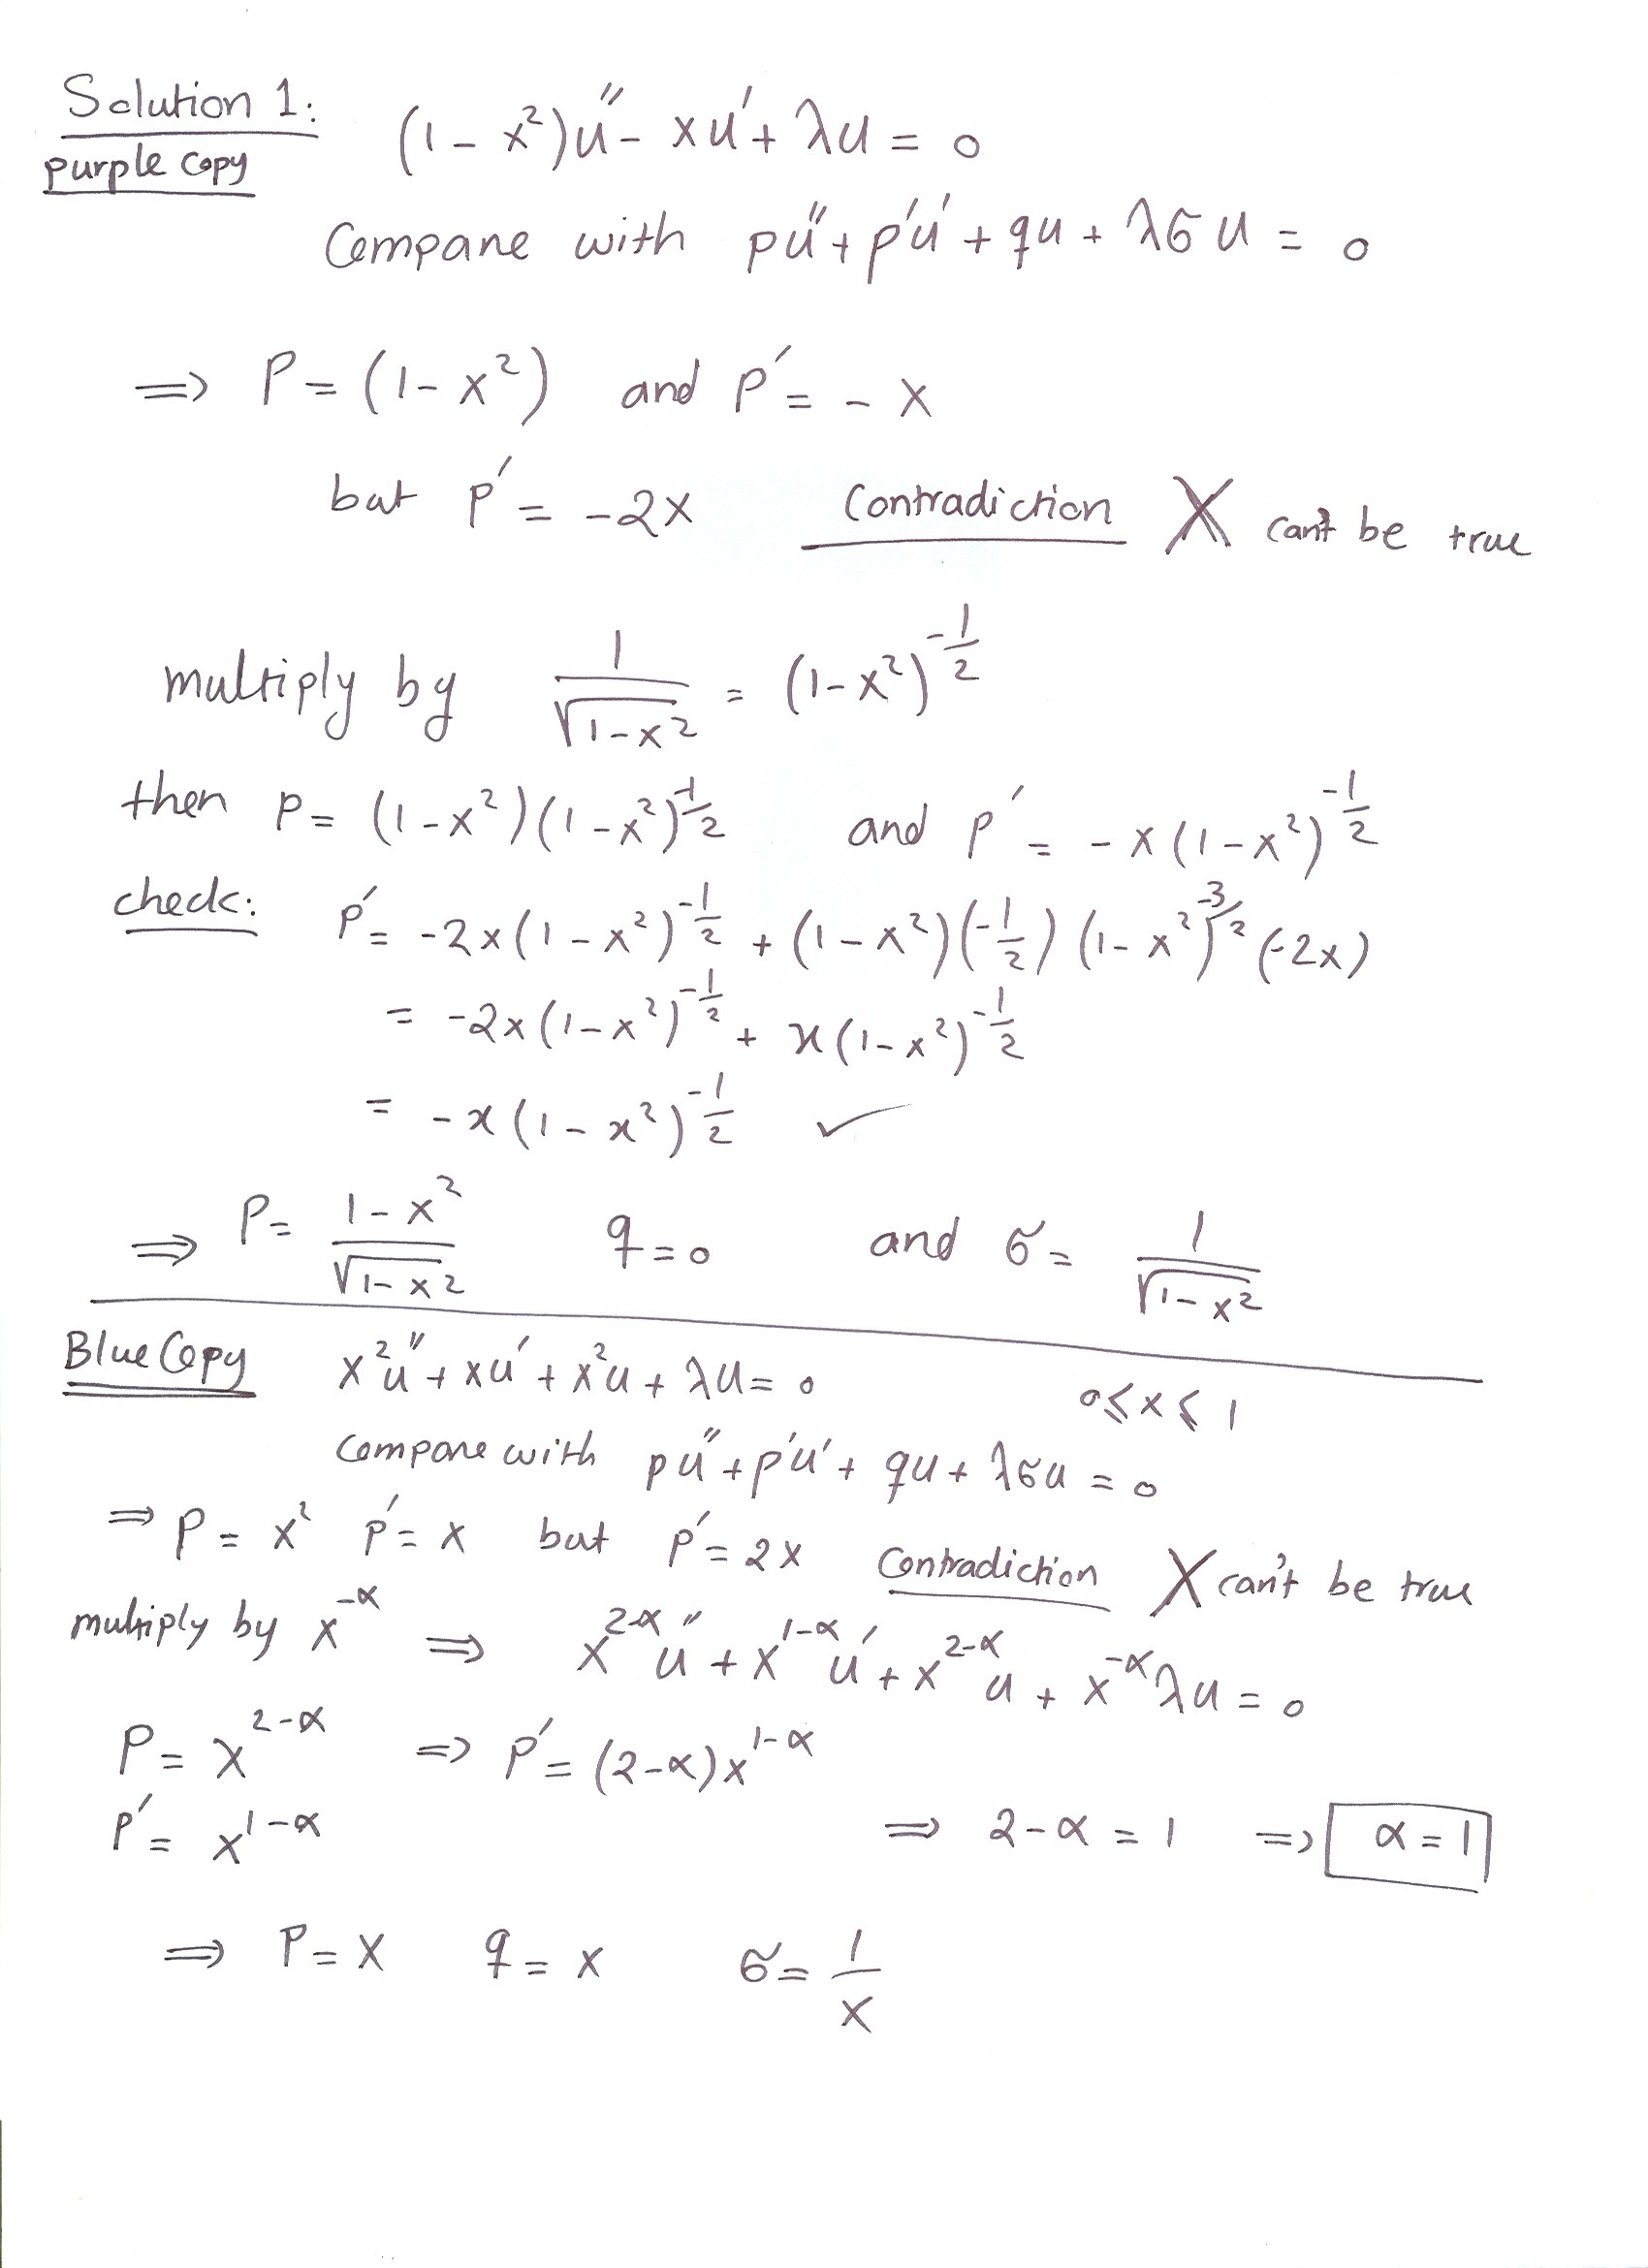 Solution 1: (1 - x²)u'' - xu' + λu = 0
purple copy
Compare with pu'' + p'u' + qu + λσu = 0
⇒ P = (1 - x²) and P' = - x
but P' = -2x Contradiction X can't be true
multiply by 1/√(1-x²) = (1-x²)^(-1/2)
then P = (1-x²)(1-x²)^(-1/2) and P' = - x(1-x²)^(-1/2)
check: P' = -2x(1-x²)^(-1/2) + (1-x²)(-1/2)(1-x²)^(-3/2)(-2x)
= -2x(1-x²)^(-1/2) + x(1-x²)^(-1/2)
= -x(1-x²)^(-1/2) ✓
⇒ P = (1-x²)/√(1-x²) q = 0 and σ = 1/√(1-x²)
Blue Copy x²u'' + xu' + x²u + λu = 0 0≤x≤1
Compare with pu'' + p'u' + qu + λσu = 0
⇒ P = x² P' = x but P' = 2x Contradiction X can't be true
multiply by x^(-α) ⇒ x^(2-α)u'' + x^(1-α)u' + x^(2-α)u + x^(-α)λu = 0
P = x^(2-α) ⇒ P' = (2-α)x^(1-α)
P' = x^(1-α) ⇒ 2-α = 1 ⇒ α = 1
⇒ P = x q = x σ = 1/x